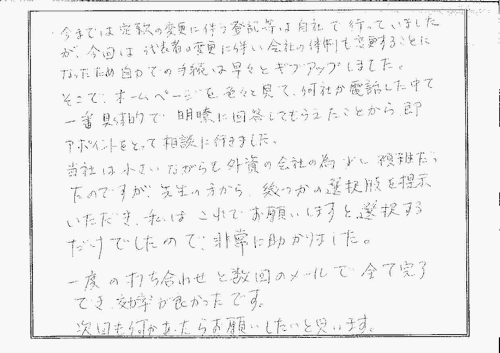 今までは定款の変更に伴う登記等は自社で行っていました
が、今回は代表者の変更に伴い会社の体制も変更することに
なったため自力での手続は早々とギブアップしました。
そこで、ホームページを色々と見て、何社か電話した中で
一番具体的で明瞭に回答してもらえたことから即
アポイントをとって相談に行きました。
当社は小さいながらも外資の会社の為少し複雑だっ
たのですが、先生の方から、幾つかの選択肢を提示
いただき、私は これでお願いしますと選択する
だけでしたので、非常に助かりました。
一度の打ち合わせと数回のメールで全て完了
でき、効率が良かったです。
次回も何かあったらお願いしたいと思います。